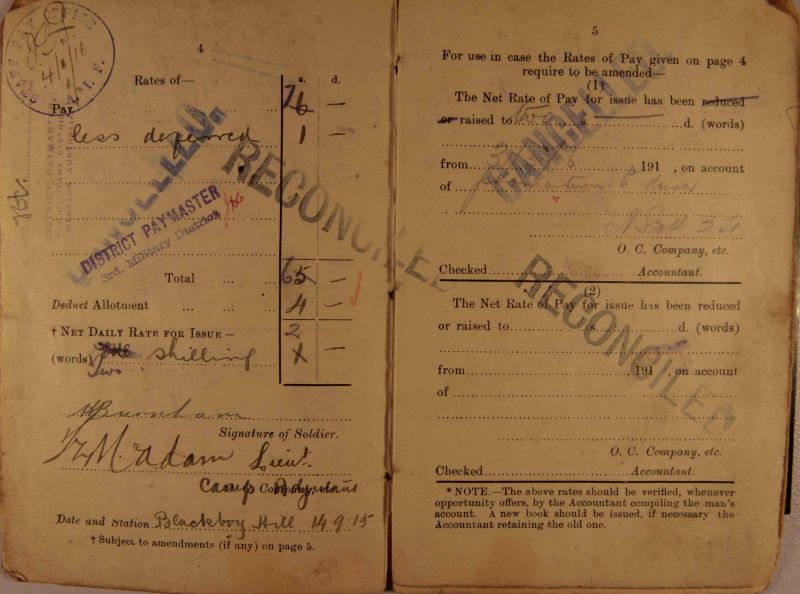 4
STAFF PAY OFFICE
A. I. F.
4/ /16
Rates of—
s. d.
Pay 7 6 —
less deferred 1 —
CANCELLED.
RECONCILED
DISTRICT PAYMASTER
3rd. Military District
DISTRICT PAYMASTER
Total 6 5 —
Deduct Allotment 4 —
† NET DAILY RATE FOR ISSUE— 2
(words) one shilling 1 —
Two
Burnham
Signature of Soldier.
M. Adam Lieut.
Camp Adjutant
Company, etc.
Date and Station Blackboy Hill 14·9·15
† Subject to amendments (if any) on page 5.
5
For use in case the Rates of Pay given on page 4
require to be amended—
(1)
The Net Rate of Pay for issue has been reduced
or raised to two s. d. (words)
CANCELLED.
from 3 , 191 , on account
of
O. C. Company, etc.
Checked Accountant.
RECONCILED
(2)
The Net Rate of Pay for issue has been reduced
or raised to s. d. (words)
from , 191 , on account
of
O. C. Company, etc.
Checked Accountant.
* NOTE.—The above rates should be verified, whenever
opportunity offers, by the Accountant compiling the man's
account. A new book should be issued, if necessary the
Accountant retaining the old one.